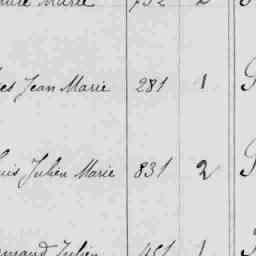 Marie 732 2
es Jean Marie 281 1
uis Julien Marie 831 2
mand Julien 451 1